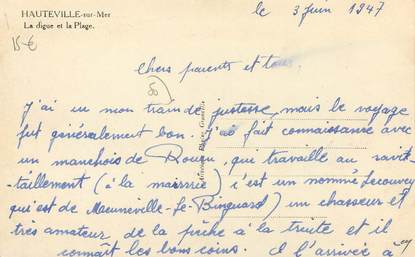 HAUTEVILLE-sur-Mer
La digue et la Plage.
15 €
le 3 juin 1947
Chers parents et tous.
J'ai eu mon train de justesse, mais le voyage
fut généralement bon. J'ai fait connaissance avec
un manchois de Rouen, qui travaille au ravi-
-taillement (à la mairie) c'est un nommé Lecouvey
qui est de Macunneville-le-Bingard) un chasseur et
très amateur de la pêche à la truite et il
connaît les bons coins. A l'arrivée à